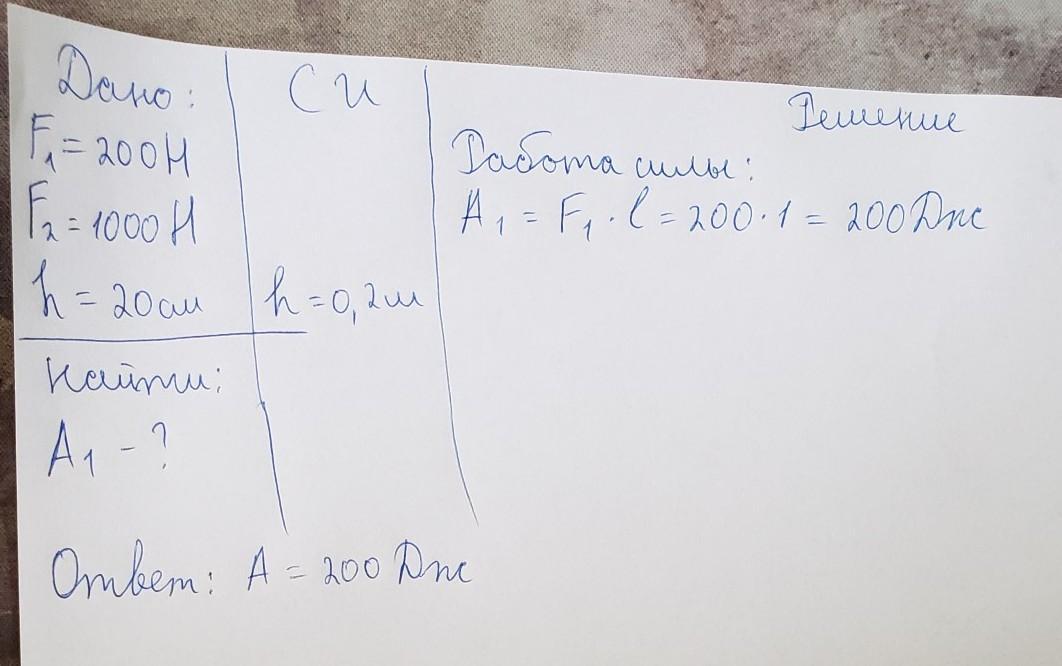 Дано:
F₁ = 200 Н
F₂ = 1000 Н
h = 20 см
Найти:
A₁ - ?
СИ
h = 0,2 м
Решение
Работа силы:
A₁ = F₁ · l = 200 · 1 = 200 Дж
Ответ: A = 200 Дж